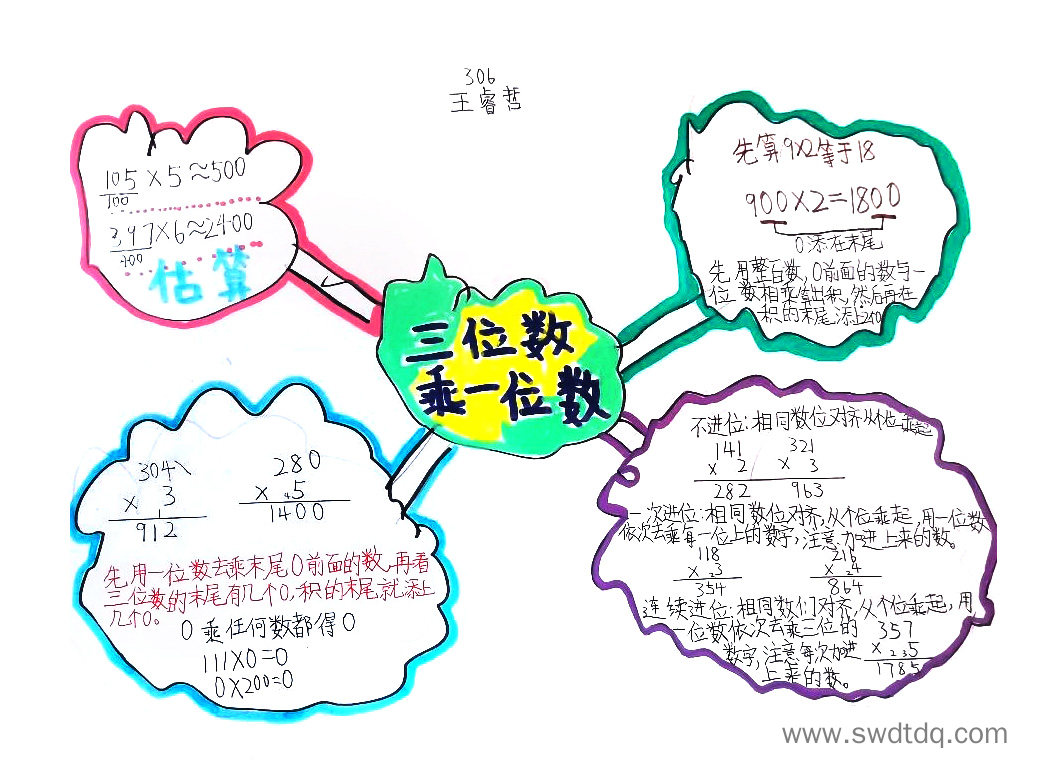 306
王睿哲
105×5≈500
100
397×6≈2400
400
估算
先算9×2等于18
900×2=1800
0添在末尾
先用整百数,0前面的数与一
位数相乘算出积,然后再在
积的末尾添上2个0
三位数
乘一位数
304
× 3
1
912
280
× 5
4
1400
先用一位数去乘末尾0前面的数,再看
三位数的末尾有几个0,积的末尾就添上
几个0。
0乘任何数都得0
111×0=0
0×200=0
不进位:相同数位对齐从个位乘起
141
× 2
282
321
× 3
963
一次进位:相同数位对齐,从个位乘起,用一位数
依次去乘每一位上的数字,注意加进上来的数。
118
× 23
354
216
× 24
864
连续进位:相同数们对齐,从个位乘起,用
一位数依次去乘三位的
数字,注意每次加进
上乘的数。
357
× 235
1785
www.swdtdq.com